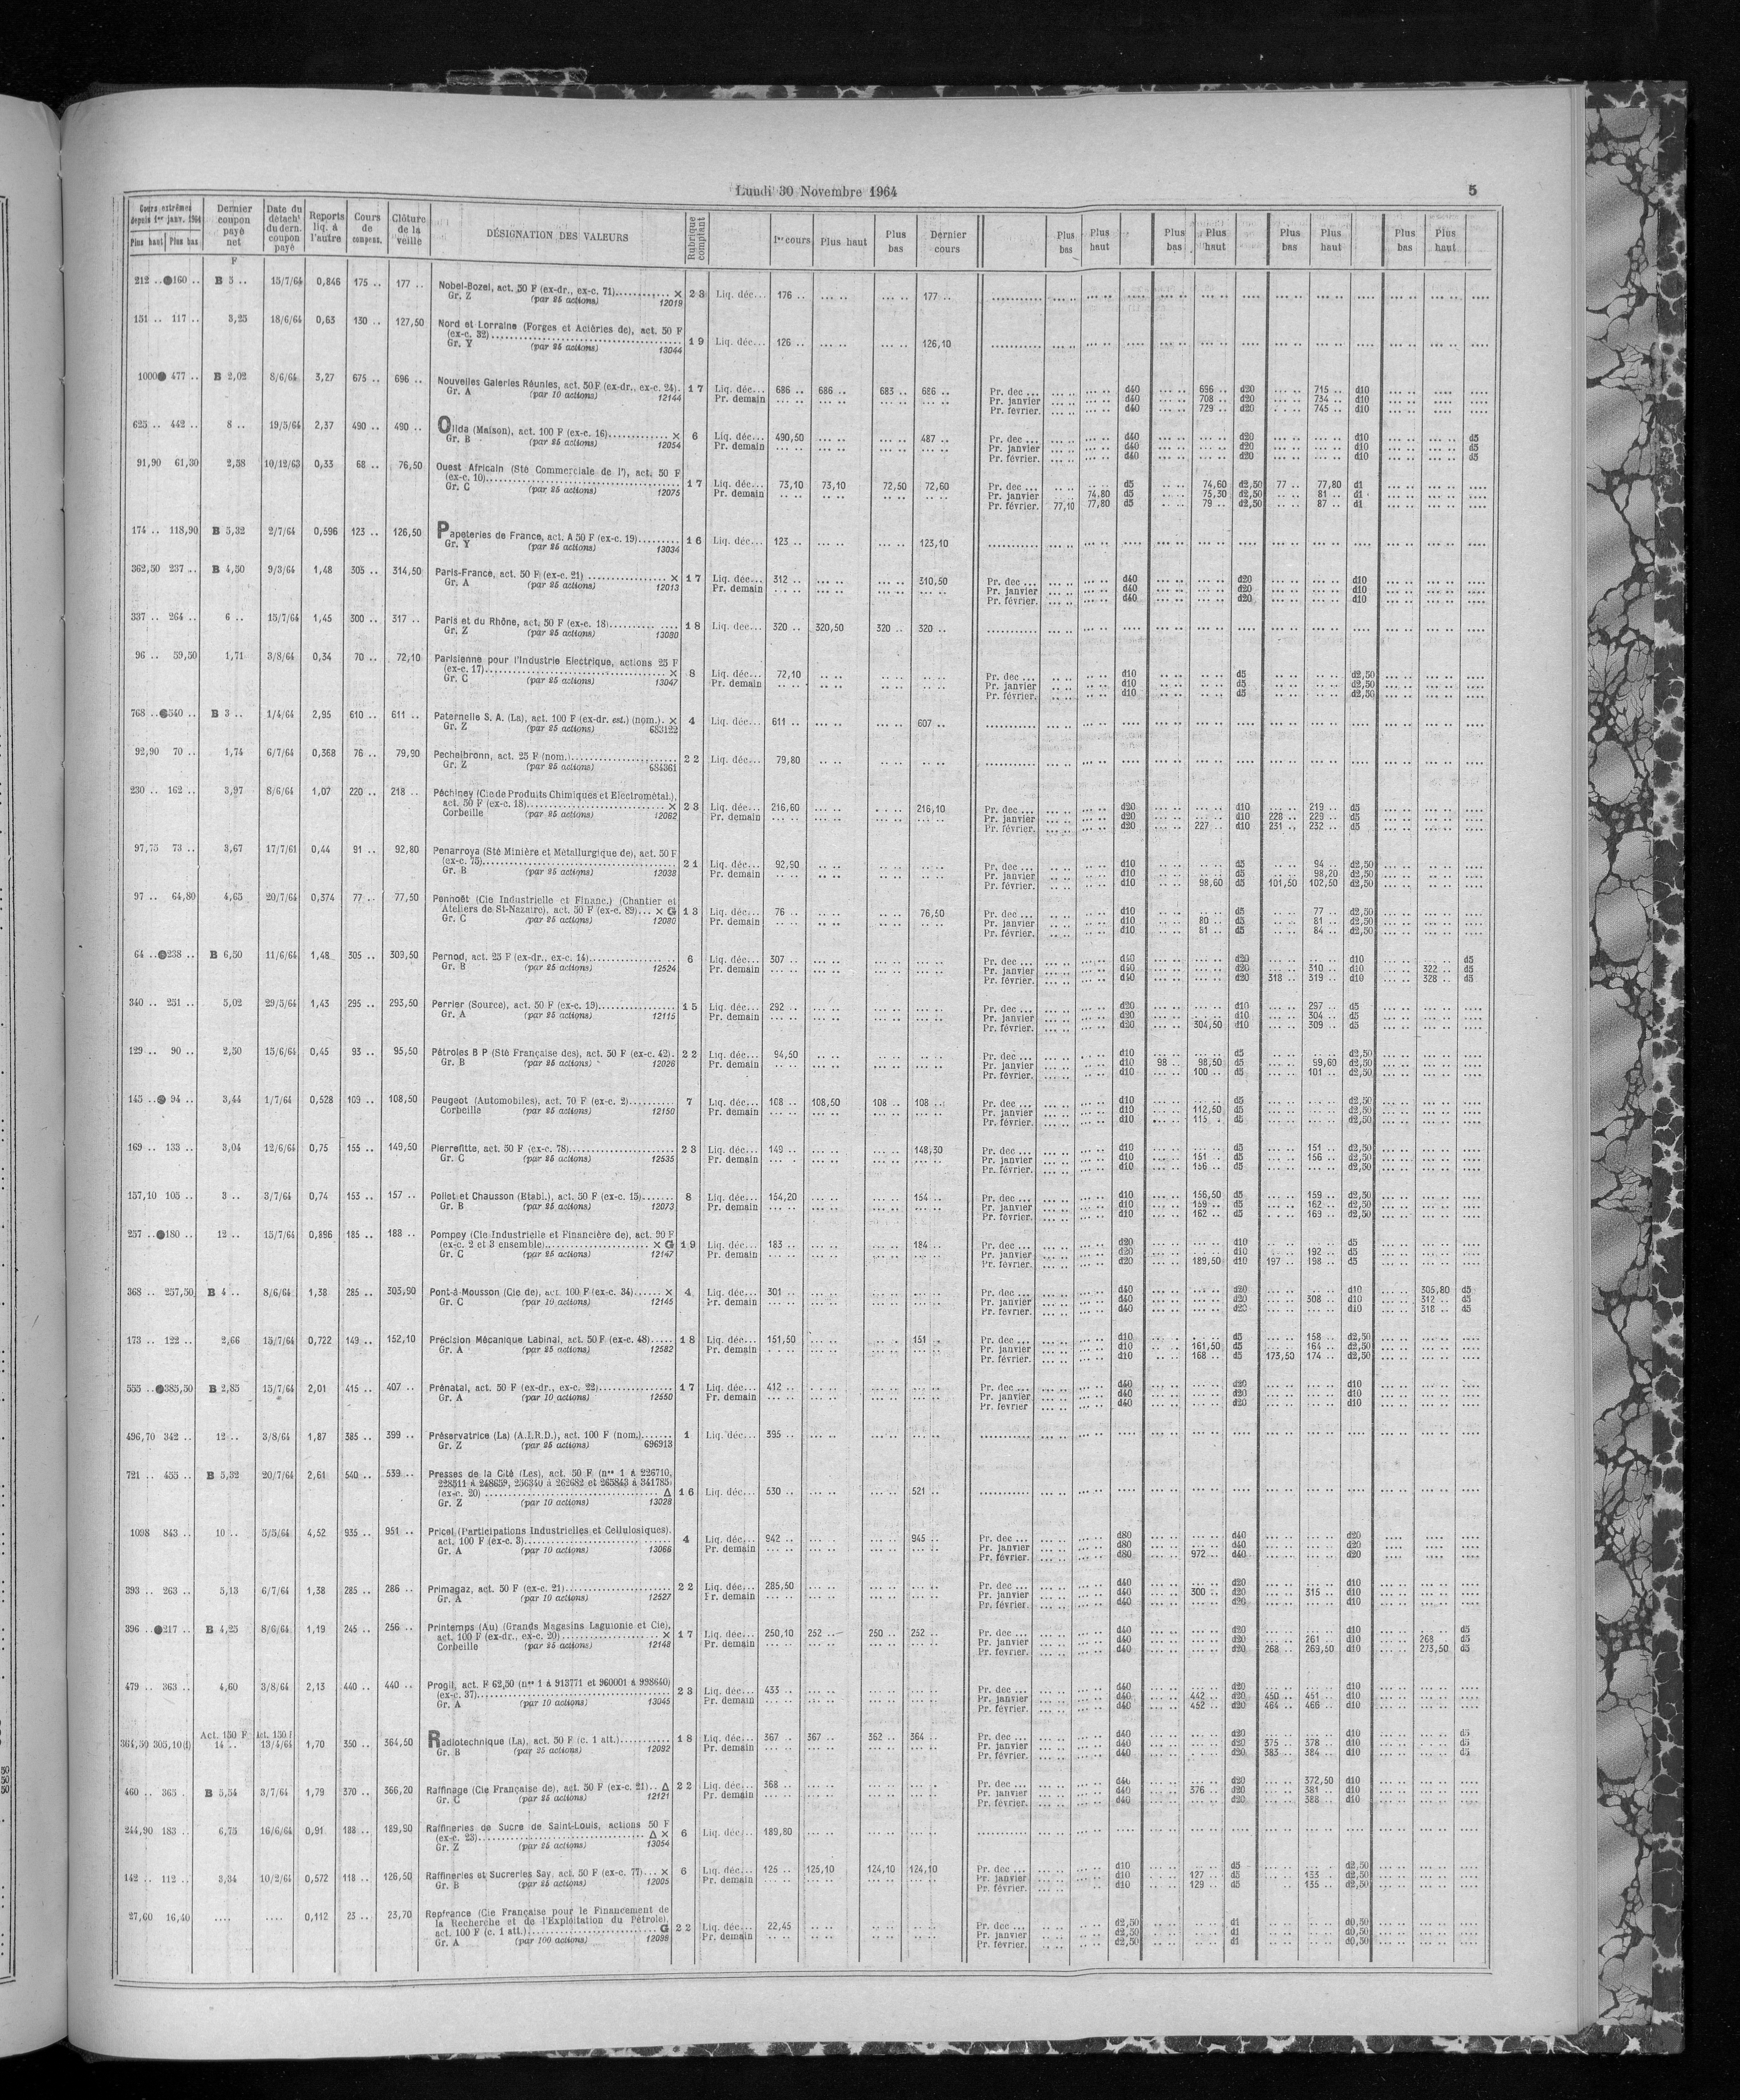 Lundi 30 Novembre 1964 5
Cours extrêmes depuis 1er janv. 1964 Plus haut Plus bas | Dernier coupon payé net | Date du détacht du dern. coupon payé | Reports liq. à l'autre | Cours de compens. | Clôture de la veille | DÉSIGNATION DES VALEURS | Rubrique comptant | 1er cours | Plus haut | Plus bas | Dernier cours | Plus bas | Plus haut | Plus bas | Plus haut | Plus bas | Plus haut | Plus bas | Plus haut
F
212 .. ●160 .. B 5 .. 15/7/64 0,846 175 .. 177 .. Nobel-Bozel, act. 50 F (ex-dr., ex-c. 71) × 23 Liq. déc... 176 .. 177 ..
Gr. Z (par 25 actions) 12019
151 .. 117 .. 3,25 18/6/64 0,63 130 .. 127,50 Nord et Lorraine (Forges et Aciéries de), act. 50 F
(ex-c. 32) 19 Liq. déc... 126 .. 126,10
Gr. Y (par 25 actions) 13044
1000● 477 .. B 2,02 8/6/64 3,27 675 .. 696 .. Nouvelles Galeries Réunies, act. 50 F (ex-dr., ex-c. 24). 17 Liq. déc... 686 .. 686 .. 683 .. 686 .. Pr. dec ... d40 696 .. d20 715 .. d10
Gr. A (par 10 actions) 12144 Pr. demain Pr. janvier d40 708 .. d20 734 .. d10
Pr. février. d40 729 .. d20 745 .. d10
625 .. 442 .. 8 .. 19/5/64 2,37 490 .. 490 .. Olida (Maison), act. 100 F (ex-c. 16) × 6 Liq. déc... 490,50 487 .. Pr. dec ... d40 d20 d10 d5
Gr. B (par 25 actions) 12054 Pr. demain Pr. janvier d40 d20 d10 d5
Pr. février. d40 d20 d10 d5
91,90 61,30 2,58 10/12/63 0,33 68 .. 76,50 Ouest Africain (Sté Commerciale de l'), act. 50 F
(ex-c. 10) 17 Liq. déc... 73,10 73,10 72,50 72,60 Pr. dec ... d5 74,60 d2,50 77 .. 77,80 d1
Gr. C (par 25 actions) 12075 Pr. demain Pr. janvier 74,80 d5 75,30 d2,50 81 .. d1
Pr. février. 77,10 77,80 d5 79 .. d2,50 87 .. d1
174 .. 118,90 B 5,32 2/7/64 0,596 123 .. 126,50 Papeteries de France, act. A 50 F (ex-c. 19) 16 Liq. déc... 123 .. 123,10
Gr. Y (par 25 actions) 13034
362,50 237 .. B 4,50 9/3/64 1,48 305 .. 314,50 Paris-France, act. 50 F (ex-c. 21) × 17 Liq. déc... 312 .. 310,50 Pr. dec ... d40 d20 d10
Gr. A (par 25 actions) 12013 Pr. demain Pr. janvier d40 d20 d10
Pr. février. d40 d20 d10
337 .. 264 .. 6 .. 15/7/64 1,45 300 .. 317 .. Paris et du Rhône, act. 50 F (ex-c. 18) 18 Liq. dec... 320 .. 320,50 320 .. 320 ..
Gr. Z (par 25 actions) 13080
96 .. 59,50 1,71 3/8/64 0,34 70 .. 72,10 Parisienne pour l'Industrie Electrique, actions 25 F
(ex-c. 17) × 8 Liq. déc... 72,10 Pr. dec ... d10 d5 d2,50
Gr. C (par 25 actions) 13047 Pr. demain Pr. janvier d10 d5 d2,50
Pr. février. d10 d5 d2,50
768 .. ●540 .. B 3 .. 1/4/64 2,95 610 .. 611 .. Paternelle S. A. (La), act. 100 F (ex-dr. est.) (nom.). × 4 Liq. déc... 611 .. 607 ..
Gr. Z (par 25 actions) 683122
92,90 70 .. 1,74 6/7/64 0,368 76 .. 79,90 Pechelbronn, act. 25 F (nom.) 22 Liq. déc... 79,80
Gr. Z (par 25 actions) 684361
230 .. 162 .. 3,97 8/6/64 1,07 220 .. 218 .. Péchiney (Cie de Produits Chimiques et Electrométal.),
act. 50 F (ex-c. 18) × 23 Liq. déc... 216,60 216,10 Pr. dec ... d20 d10 219 .. d5
Corbeille (par 25 actions) 12062 Pr. demain Pr. janvier d20 d10 228 .. 229 .. d5
Pr. février. d20 227 .. d10 231 .. 232 .. d5
97,75 73 .. 3,67 17/7/61 0,44 91 .. 92,80 Penarroya (Sté Minière et Métallurgique de), act. 50 F
(ex-c. 75) 21 Liq. déc... 92,90 Pr. dec ... d10 d5 94 .. d2,50
Gr. B (par 25 actions) 12038 Pr. demain Pr. janvier d10 d5 98,20 d2,50
Pr. février. d10 98,60 d5 101,50 102,50 d2,50
97 .. 64,80 4,65 20/7/64 0,374 77 .. 77,50 Penhoët (Cie Industrielle et Financ.) (Chantier et
Ateliers de St-Nazaire), act. 50 F (ex-c. 89)... × G 13 Liq. déc... 76 .. 76,50 Pr. dec ... d10 d5 77 .. d2,50
Gr. C (par 25 actions) 12080 Pr. demain Pr. janvier d10 80 .. d5 81 .. d2,50
Pr. février. d10 81 .. d5 84 .. d2,50
64 .. ●238 .. B 6,50 11/6/64 1,48 305 .. 309,50 Pernod, act. 25 F (ex-dr., ex-c. 14) 6 Liq. déc... 307 .. Pr. dec ... d40 d20 d10 d5
Gr. B (par 25 actions) 12524 Pr. demain Pr. janvier d40 d20 310 .. d10 322 .. d5
Pr. février. d40 d20 318 .. 319 .. d10 328 .. d5
340 .. 251 .. 5,02 29/5/64 1,43 295 .. 293,50 Perrier (Source), act. 50 F (ex-c. 19) 15 Liq. déc... 292 .. Pr. dec ... d20 d10 297 .. d5
Gr. A (par 25 actions) 12115 Pr. demain Pr. janvier d20 d10 304 .. d5
Pr. février. d20 304,50 d10 309 .. d5
129 .. 90 .. 2,50 15/6/64 0,45 93 .. 95,50 Pétroles B P (Sté Française des), act. 50 F (ex-c. 42). 22 Liq. déc... 94,50 Pr. dec ... d10 d5 d2,50
Gr. B (par 25 actions) 12026 Pr. demain Pr. janvier d10 98 .. 98,50 d5 99,60 d2,50
Pr. février. d10 100 .. d5 101 .. d2,50
145 .. ● 94 .. 3,44 1/7/64 0,528 109 .. 108,50 Peugeot (Automobiles), act. 70 F (ex-c. 2) 7 Liq. déc... 108 .. 108,50 108 .. 108 .. Pr. dec ... d10 d5 d2,50
Corbeille (par 25 actions) 12150 Pr. demain Pr. janvier d10 112,50 d5 d2,50
Pr. février. d10 115 . d5 d2,50
169 .. 133 .. 3,04 12/6/64 0,75 155 .. 149,50 Pierrefitte, act. 50 F (ex-c. 78) 23 Liq. déc... 149 .. 148,30 Pr. dec ... d10 d5 151 .. d2,50
Gr. C (par 25 actions) 12535 Pr. demain Pr. janvier d10 151 .. d5 156 .. d2,50
Pr. février. d10 156 .. d5 d2,50
157,10 105 .. 3 .. 3/7/64 0,74 153 .. 157 .. Poliet et Chausson (Etabl.), act. 50 F (ex-c. 15) 8 Liq. déc... 154,20 154 .. Pr. dec ... d10 156,50 d5 159 .. d2,50
Gr. B (par 25 actions) 12073 Pr. demain Pr. janvier d10 159 .. d5 162 .. d2,50
Pr. février. d10 162 .. d5 169 .. d2,50
257 .. ●180 .. 12 .. 15/7/64 0,896 185 .. 188 .. Pompey (Cie Industrielle et Financière de), act. 90 F
(ex-c. 2 et 3 ensemble) × G 19 Liq. déc... 183 .. 184 .. Pr. dec ... d20 d10 d5
Gr. C (par 25 actions) 12147 Pr. demain Pr. janvier d20 d10 192 .. d5
Pr. février. d20 189,50 d10 197 .. 198 .. d5
368 .. 257,50 B 4 .. 8/6/64 1,38 285 .. 303,90 Pont-à-Mousson (Cie de), act. 100 F (ex-c. 34) × 4 Liq. déc... 301 .. Pr. dec ... d40 d20 d10 305,80 d5
Gr. C (par 10 actions) 12145 Pr. demain Pr. janvier d40 d20 308 .. d10 312 .. d5
Pr. février. d40 d20 d10 318 .. d5
173 .. 122 .. 2,66 15/7/64 0,722 149 .. 152,10 Précision Mécanique Labinal, act. 50 F (ex-c. 48) 18 Liq. déc... 151,50 151 .. Pr. dec ... d10 d5 158 .. d2,50
Gr. A (par 25 actions) 12582 Pr. demain Pr. janvier d10 161,50 d5 164 .. d2,50
Pr. février. d10 168 .. d5 173,50 174 .. d2,50
555 .. ●385,50 B 2,85 15/7/64 2,01 415 .. 407 .. Prénatal, act. 50 F (ex-dr., ex-c. 22) 17 Liq. déc... 412 .. Pr. dec ... d40 d20 d10
Gr. A (par 10 actions) 12550 Pr. demain Pr. janvier d40 d20 d10
Pr. février d40 d20 d10
496,70 342 .. 12 .. 3/8/64 1,87 385 .. 399 .. Préservatrice (La) (A.I.R.D.), act. 100 F (nom.) 1 Liq. déc... 395 ..
Gr. Z (par 25 actions) 696913
721 .. 455 .. B 5,32 20/7/64 2,61 540 .. 539 .. Presses de la Cité (Les), act. 50 F (nos 1 à 226710,
228311 à 248659, 256340 à 262682 et 265843 à 341785)
(ex-c. 20) Δ 16 Liq. déc... 530 .. 521 ..
Gr. Z (par 10 actions) 13028
1098 843 .. 10 .. 5/5/64 4,52 935 .. 951 .. Pricel (Participations Industrielles et Cellulosiques),
act. 100 F (ex-c. 3) 4 Liq. déc... 942 .. 945 .. Pr. dec ... d80 d40 d20
Gr. A (par 10 actions) 13066 Pr. demain Pr. janvier d80 d40 d20
Pr. février. d80 972 .. d40 d20
393 .. 263 .. 5,13 6/7/64 1,38 285 .. 286 .. Primagaz, act. 50 F (ex-c. 21) 22 Liq. déc... 285,50 Pr. dec ... d40 d20 d10
Gr. A (par 10 actions) 12527 Pr. demain Pr. janvier d40 300 .. d20 315 .. d10
Pr. février. d40 d20 d10
396 .. ●217 .. B 4,25 8/6/64 1,19 245 .. 256 .. Printemps (Au) (Grands Magasins Laguionie et Cie),
act. 100 F (ex-dr., ex-c. 20) × 17 Liq. déc... 250,10 252 .. 250 .. 252 .. Pr. dec ... d40 d20 d10 d5
Corbeille (par 25 actions) 12148 Pr. demain Pr. janvier d40 d20 261 .. d10 268 d5
Pr. février. d40 d20 268 .. 269,50 d10 273,50 d5
479 .. 363 .. 4,60 3/8/64 2,13 440 .. 440 .. Progil, act. F 62,50 (nos 1 à 913771 et 960001 à 998640)
(ex-c. 37) 23 Liq. déc... 433 .. Pr. dec ... d40 d20 d10
Gr. A (par 10 actions) 13045 Pr. demain Pr. janvier d40 442 .. d20 450 .. 451 .. d10
Pr. février. d40 452 .. d20 464 .. 466 .. d10
Act. 150 F Act. 150 F
364,50 305,10(1) 14 .. 13/4/64 1,70 350 .. 364,50 Radiotechnique (La), act. 50 F (c. 1 att.) 18 Liq. déc... 367 .. 367 .. 362 .. 364 .. Pr. dec ... d40 d20 d10 d5
Gr. B (par 25 actions) 12092 Pr. demain Pr. janvier d40 d20 375 .. 378 .. d10 d5
Pr. février. d40 d20 383 .. 384 .. d10 d5
460 .. 365 . B 5,54 3/7/64 1,79 370 .. 366,20 Raffinage (Cie Française de), act. 50 F (ex-c. 21).. Δ 22 Liq. déc... 368 .. Pr. dec ... d40 d20 372,50 d10
Gr. C (par 25 actions) 12121 Pr. demain Pr. janvier d40 376 .. d20 381 .. d10
Pr. février. d40 d20 388 .. d10
244,90 183 .. 6,75 16/6/64 0,91 188 .. 189,90 Raffineries de Sucre de Saint-Louis, actions 50 F
(ex-c. 23) Δ × 6 Liq. déc... 189,80
Gr. Z (par 25 actions) 13054
142 .. 112 .. 3,34 10/2/64 0,572 118 .. 126,50 Raffineries et Sucreries Say, act. 50 F (ex-c. 77)... × 6 Liq. déc... 125 .. 125,10 124,10 124,10 Pr. dec ... d10 d5 d2,50
Gr. B (par 25 actions) 12005 Pr. demain Pr. janvier d10 127 .. d5 133 .. d2,50
Pr. février. d10 129 .. d5 135 .. d2,50
27,60 16,40 .... .... 0,112 23 .. 23,70 Repfrance (Cie Française pour le Financement de
la Recherche et de l'Exploitation du Pétrole),
act. 100 F (c. 1 att.) G 22 Liq. déc... 22,45 Pr. dec ... d2,50 d1 d0,50
Gr. A (par 100 actions) 12098 Pr. demain Pr. janvier d2,50 d1 d0,50
Pr. février. d2,50 d1 d0,50